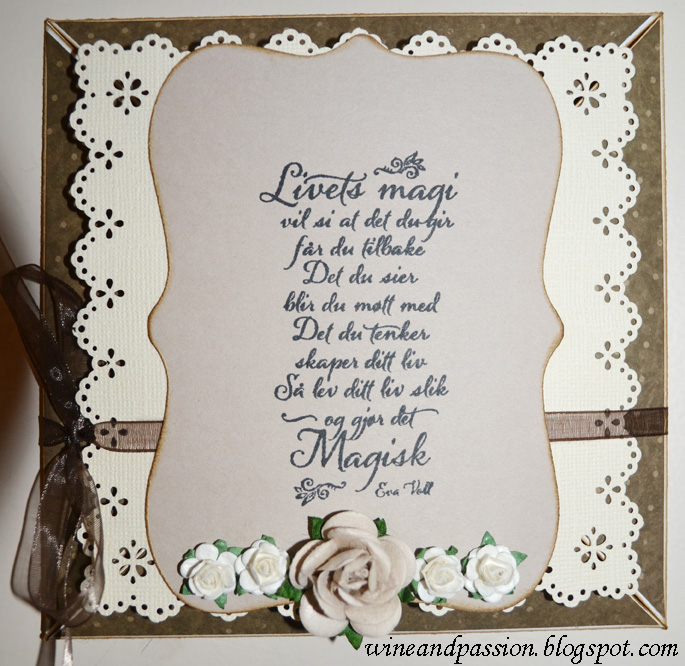 Livets magi
vil si at det du gir
får du tilbake
Det du sier
blir du møtt med
Det du tenker
skaper ditt liv
Så lev ditt liv slik
og gjør det
Magisk
Eva Voll
wineandpassion.blogspot.com